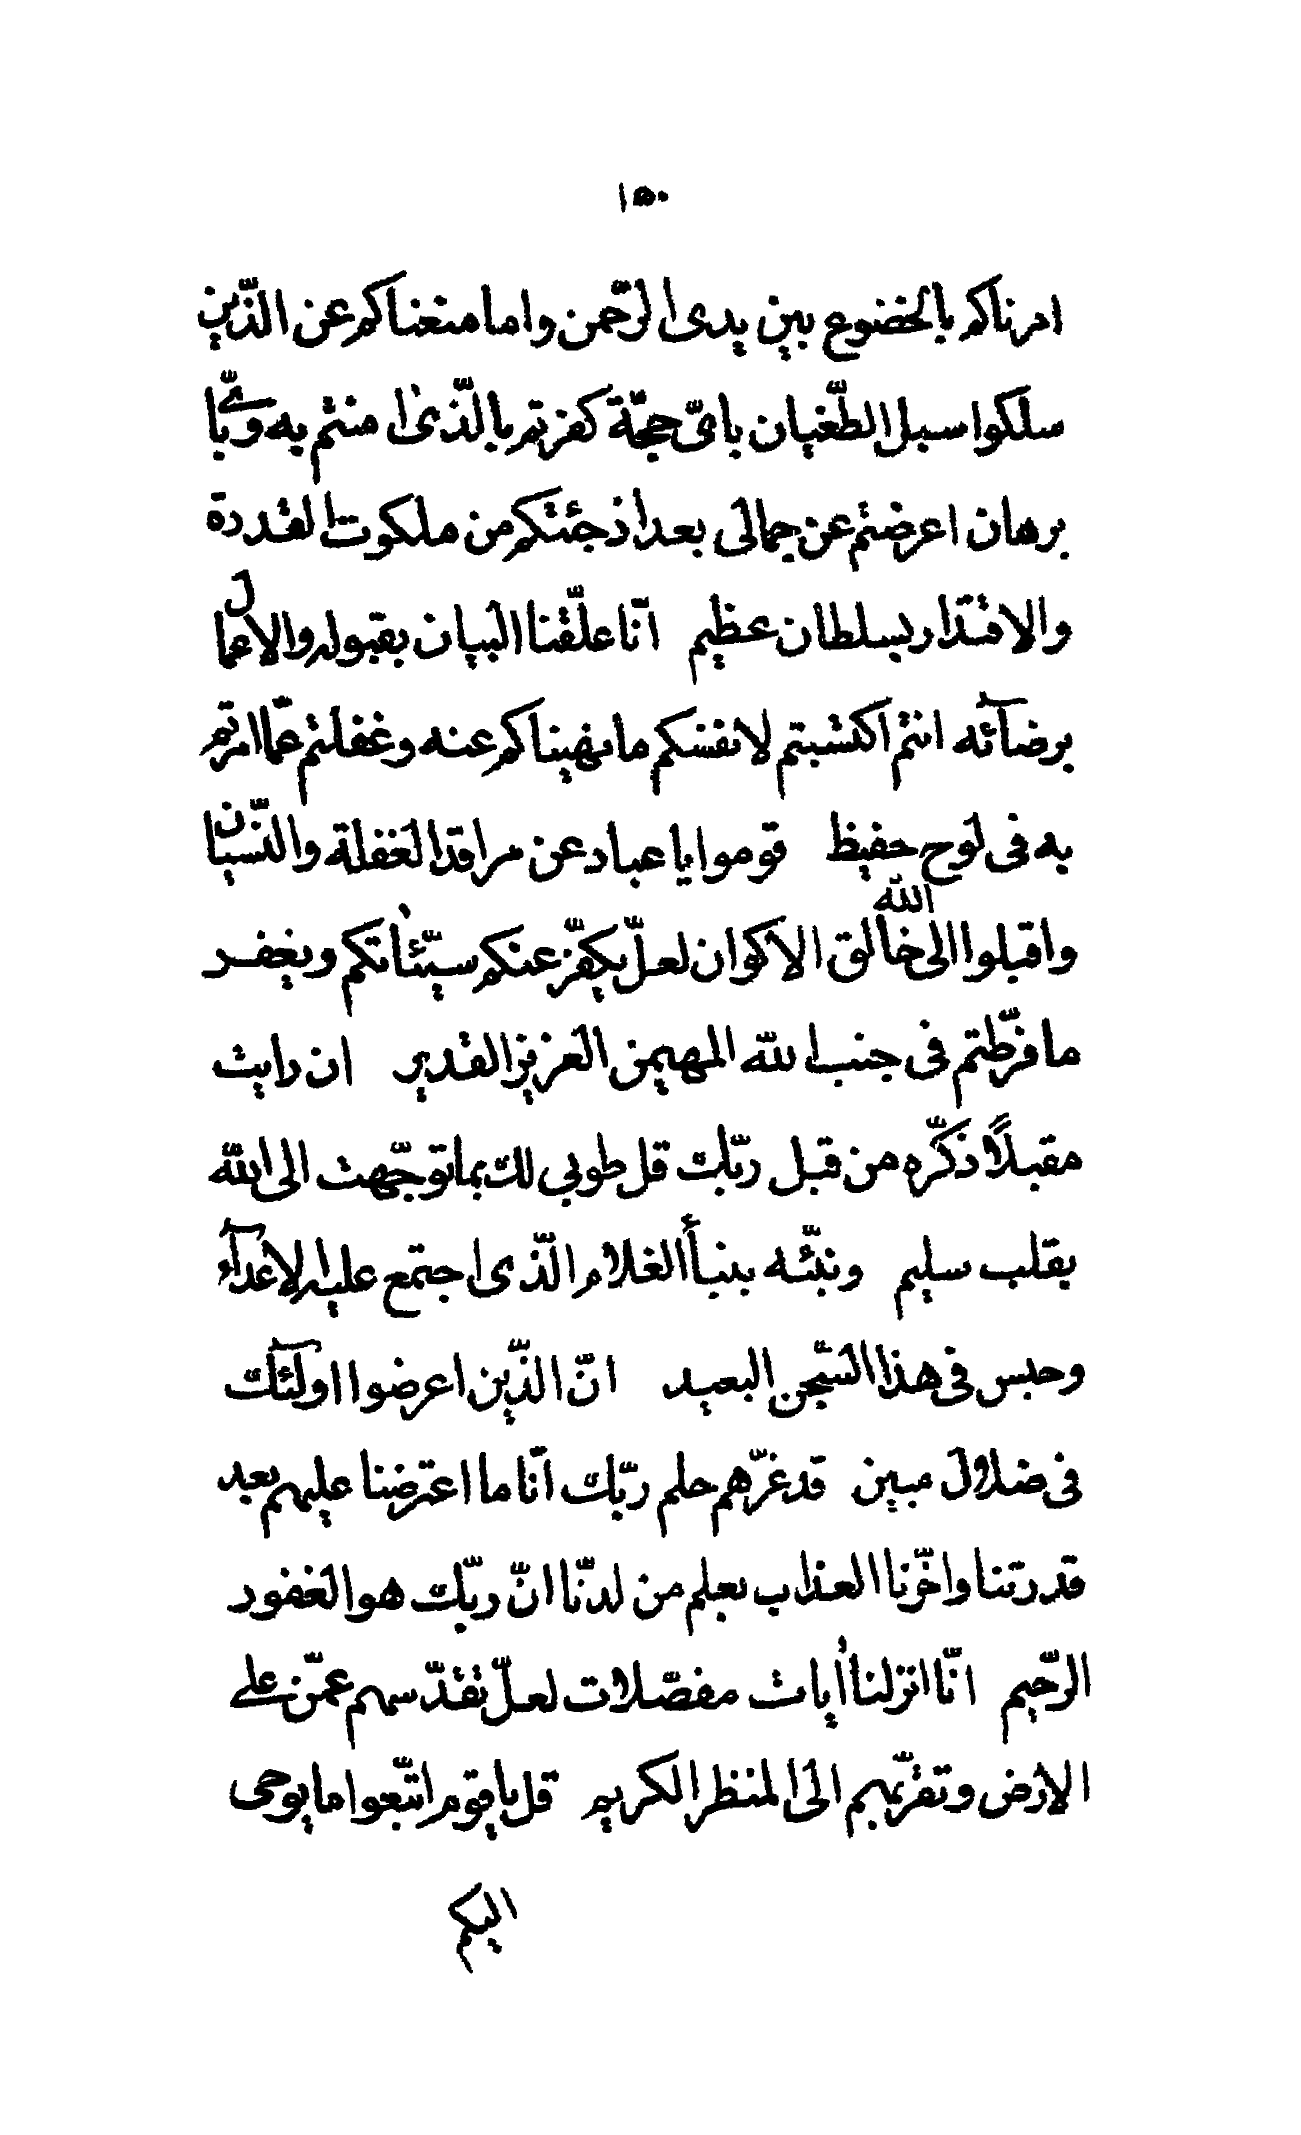 ١٥٠
امرناكم بالخضوع بين يدى الرّحمن واما منعناكم عن الّذين
سلكوا سبل الطّغيان باىّ حجّة كفرتم بالّذى امنتم به وباىّ
برهان اعرضتم عن جمالى بعد اذ جئتكم من ملكوت القدرة
والاقتدار بسلطان عظيم انّا علّقنا البيان بقبوله والاعمال
برضآئه انتم اكتسبتم لانفسكم ما نهيناكم عنه وغفلتم عمّا امرتم
به فى لوح حفيظ قوموا يا عباد عن مراقد الغفلة والنّسيان
واقبلوا الى الله خالق الاكوان لعلّ يكفّر عنكم سيّئاتكم ويغفر
ما فرّطتم فى جنب الله المهيمن العزيز القدير ان رايت
مقبلاً ذكّره من قبل ربّك قل طوبى لك بما توجّهت الى الله
بقلب سليم ونبّئه بنبأ الغلام الّذى اجتمع عليه الاعدآء
وحبس فى هذا السّجن البعيد انّ الّذين اعرضوا اولئك
فى ضلال مبين قد غرّهم حلم ربّك انّا ما اعترضنا عليهم بعد
قدرتنا واخّرنا العذاب بعلم من لدنّا انّ ربّك هو الغفور
الرّحيم انّا انزلنا ايات مفصّلات لعلّ تقدّسهم عمّن على
الارض وتقرّبهم الى المنظر الكريم قل يا قوم اتّبعوا ما يوحى
اليكم